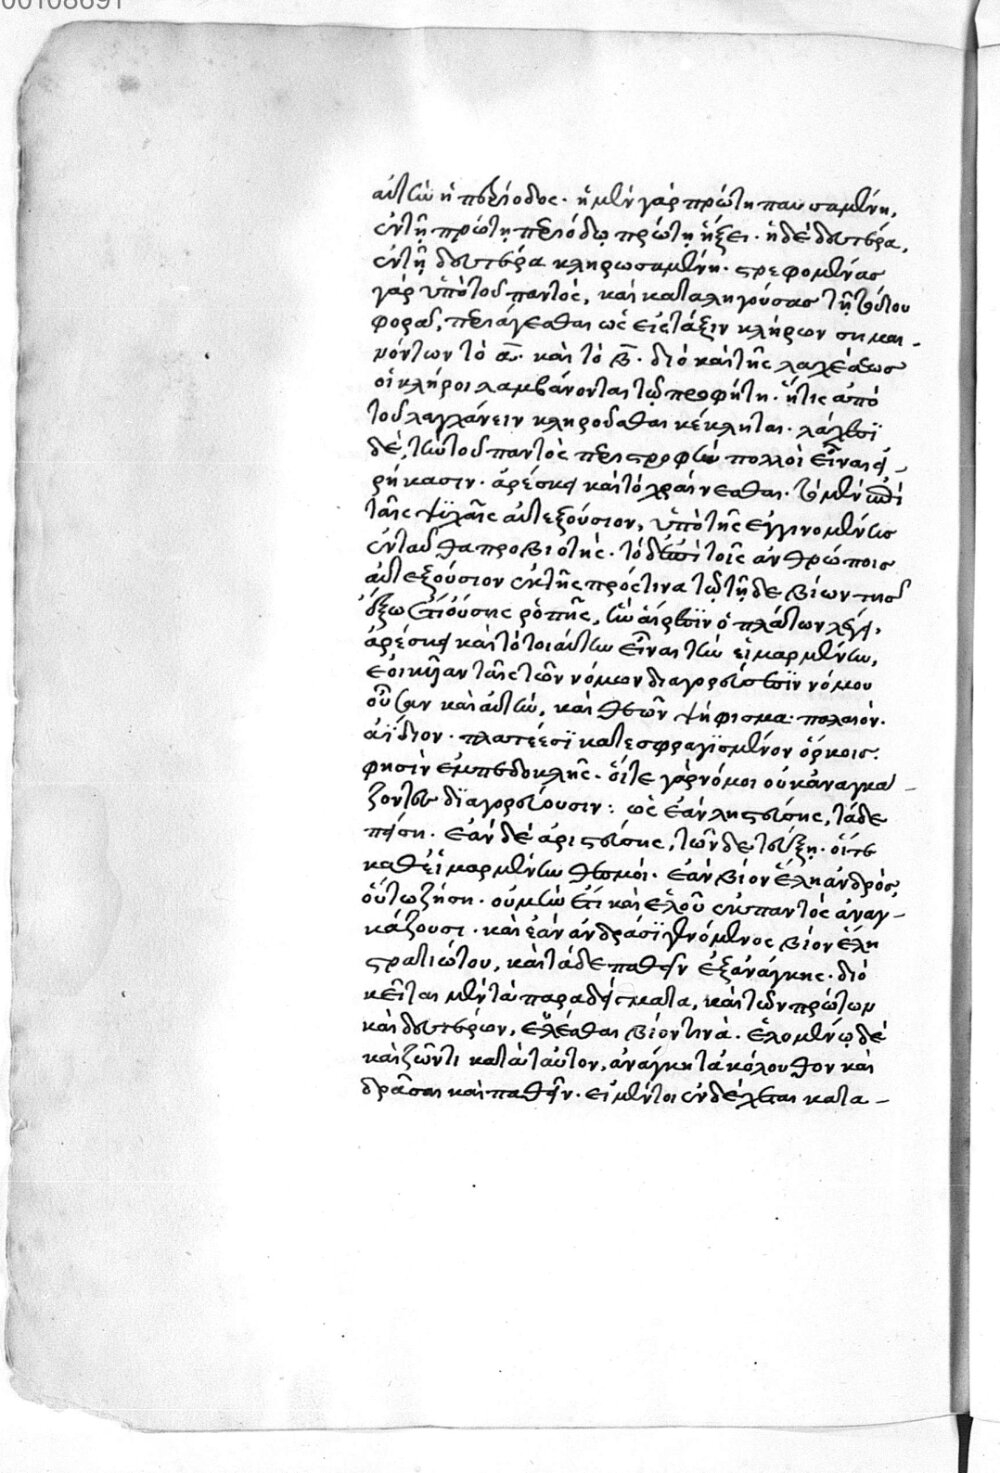 00108691
αὐτὼ ἡ περίοδος· ἡ μὲν γὰρ πρώτη παυσαμένη,
ἐν τῇ πρώτῃ περιόδῳ πρώτη ἥξει· ἡ δὲ δευτέρα,
ἐν τῇ δευτέρα κληρωσαμένη· στρεφομένας
γὰρ ὑπὸ τοῦ παντὸς, καὶ καταληγούσας τῇ τούτου
φορᾶ, περιάγεσθαι ὡς εἰς τάξιν κλήρων σημαι-
νόντων τὸ α̅· καὶ τὸ β̅· διὸ καὶ τῆς λαχέσεως
οἱ κλῆροι λαμβάνονται τῷ προφήτῃ· ἥτις ἀπὸ
τοῦ λαγχάνειν κληροῦσθαι κέκληται· λάχεσϊ
δὲ, τὼ τοῦ παντὸς περιστροφὼ πολλοὶ εἶναι εἰ-
ρήκασιν· ἀρέσκει καὶ τὸ κραίνεσθαι· τὸ μὲν ἐπὶ
ταῖς ψϋχαῖς αὐτεξούσιον, ὑπὸ τῆς ἐγγινομένης
ἐνταῦθα προβιοτῆς· τὸ δὲ ἐπὶ τοῖς ἀνθρώποις
αὐτεξούσιον ἐκ τῆς πρός τινα τῷ τῇδε βίων τῆς
ἔξω ἐπιούσης ῥοπῆς, ὼ αἵρεσϊν ὁ πλάτων λέγει·
ἀρέσκει καὶ τὸ τοιαύτω εἶναι τὼ εἱμαρμένω,
ἐοικῆαν ταῖς τῶν νόμων διαγορεύσεσϊν νόμου
οὖσαν καὶ αὐτὼ, καὶ θεῶν ψήφισμα· παλαιόν·
ἀΐδιον· πλατέεσϊ κατεσφραγϊσμένον ὅρκοις·
φησὶν ἐμπεδοκλῆς· οἵτε γὰρ νόμοι οὐκ ἀναγκά-
ζοντες δϊαγορεύουσιν: ὡς ἐὰν λῃστεύσῃς, τάδε
πείσῃ· ἐὰν δὲ ἀριστεύσῃς, τῶνδε τεύξῃ· οἵτε
καθ' εἱμαρμένω θεσμοὶ· ἐὰν βίον ἕλῃ ἀνδρὸς,
οὕτω ζήσῃ· οὐ μὼ ἔτι καὶ ἑλοῦ ἐκ παντὸς ἀναγ-
κάζουσι· καὶ ἐὰν ἀνδράσϊ γενόμενος βίον ἕλῃ
στρατιώτου, καὶ τάδε παθεῖν ἐξανάγκης· διὸ
κεῖται μὲν τὰ παραδείγματα, καὶ τῶν πρώτων
καὶ δευτέρων, ἑλέσθαι βίον τινὰ· ἑλομένῳ δὲ
καὶ ζῶντι κατὰ ταύτον, ἀνάγκη τἀκόλουθον καὶ
δρᾶσαι καὶ παθεῖν· εἰ μέντοι ἐνδέχεται κατα-